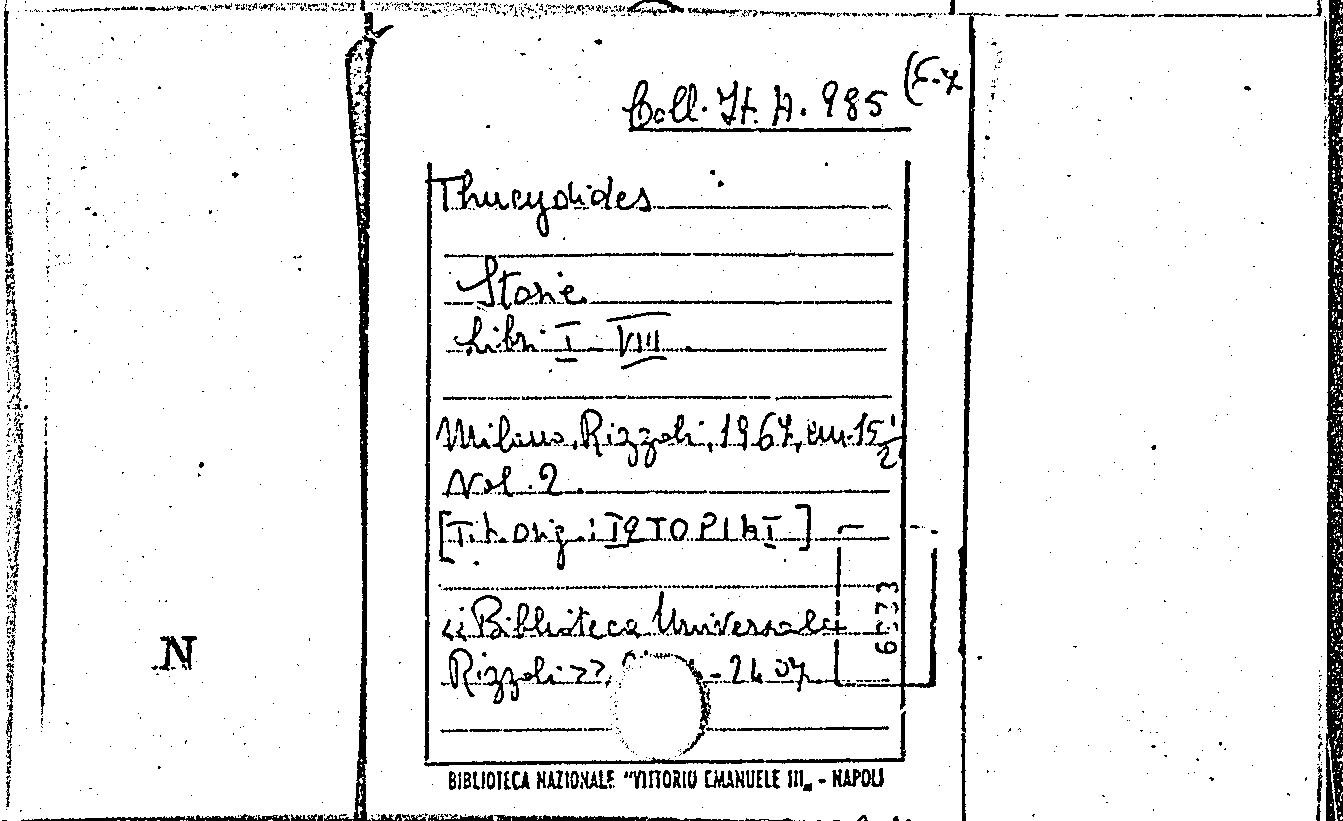 Coll. It. A. 985 (5.7
Thucydides
Storie
Libri I-VIII
Milano, Rizzoli, 1967, cm. 15 1/2
Vol. 2.
[Tit. orig.: ΙΣΤΟΡΙΑΙ]
«Biblioteca Universale
Rizzoli»,
N
BIBLIOTECA NAZIONALE "VITTORIO EMANUELE III„ - NAPOLI